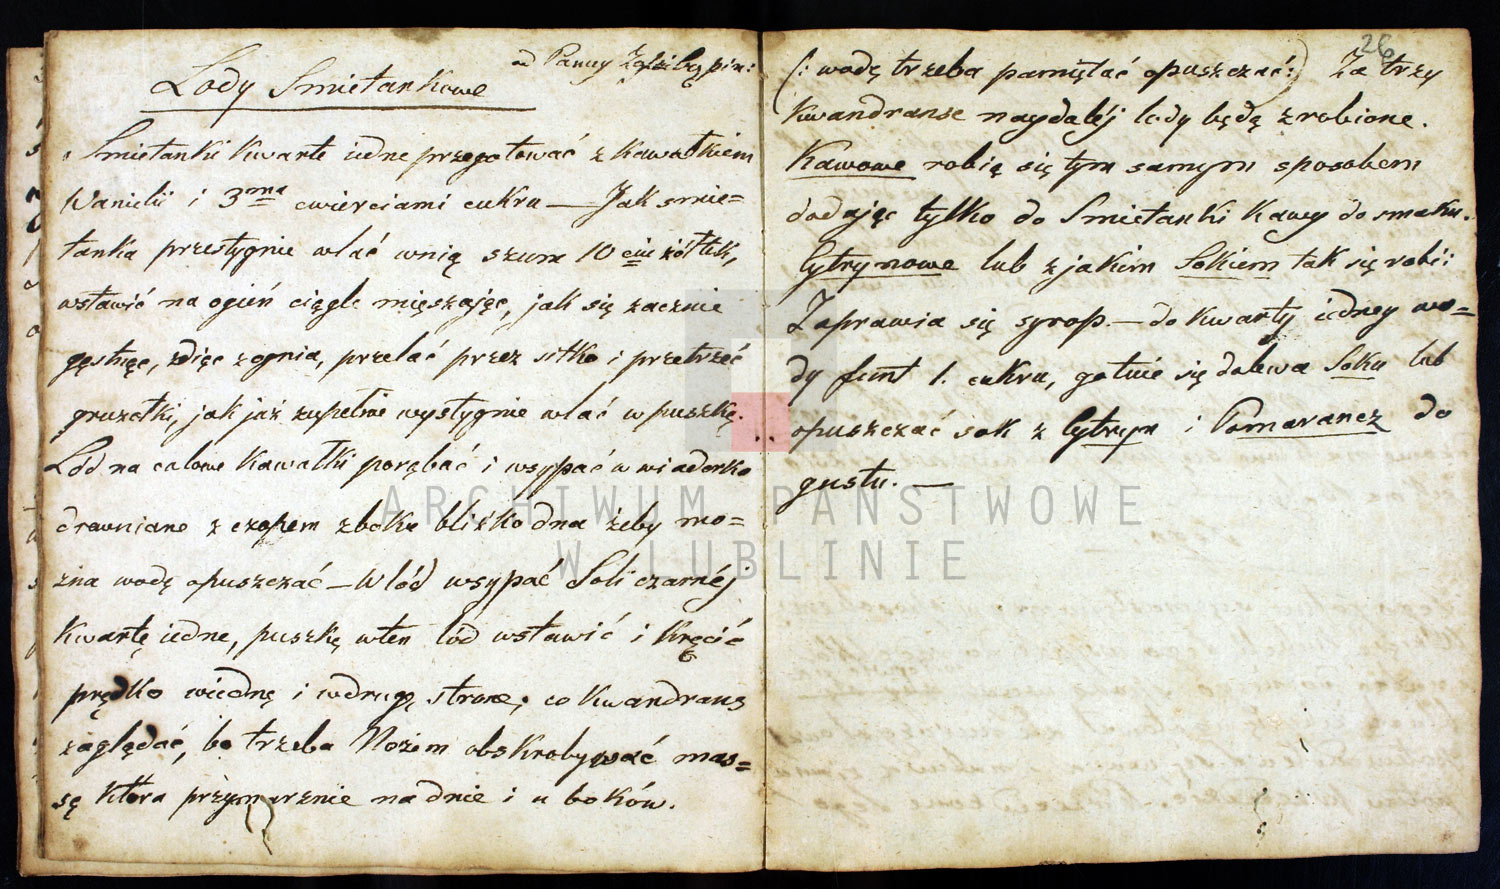 Lody Smietankowe
od Panny
Smietanki kwarte iedne przegotować z kawałkiem
Wanielii i 3ma cwierciami cukru — Jak smie=
tanka przestygnie wlać wnią szum 10ciu żółtek,
wstawić na ogień ciągle mięszając, jak się zacznie
gęstnęć, zdięć z ognia, przelać przez sitko i przetrzeć
gruzełki, jak już zupełnie wystygnie wlać w puszkę.
Lód na calowe kawałki porąbać i wsypać w wiaderko
drewniane z czopem z boku blizko dna żeby mo=
zna wodę opuszczać — W lód wsypać Soli czarnéj
kwartę iedne, puszkę wten lód wstawić i kręcić
prędko wiednę i wdrugę strone; co kwandrans
zaględać, bo trzeba Nożem obskrobywać mas=
sę która przymarznie na dnie i u boków.
26
(: wodę trzeba pamętać opuszczać :) Za trzy
kwandranse naydaléj lody będą zrobione.
Kawowe robią się tym samym sposobem
dodając tylko do Smietanki Kawy do smaku.
Cytrynowe lub z jakim Sokiem tak się robi:
Zaprawia się syrop. — do kwarty iedney wo=
dy funt 1. cukru, gotuie się dolewa Soku lub
opuszczać sok z Cytryn i Pomarancz do
gustu. —
ARCHIWUM PAŃSTWOWE
W LUBLINIE